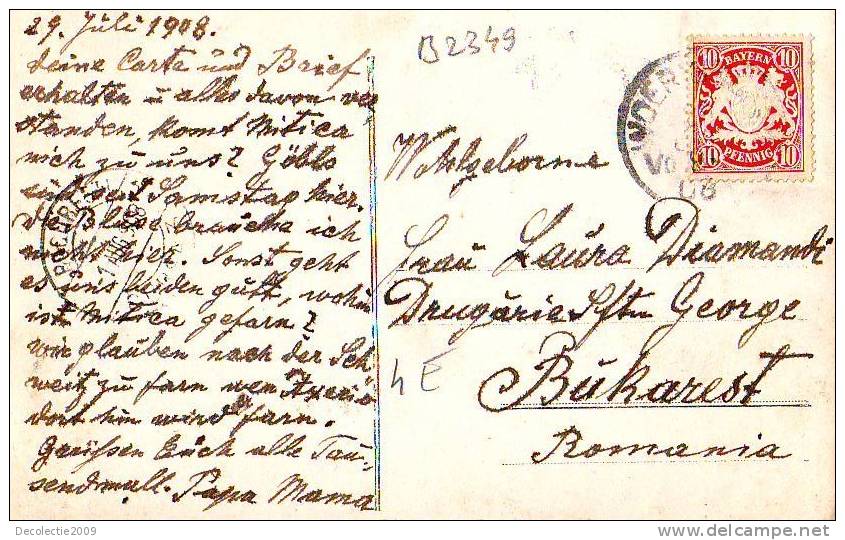 29. Juli 1908.
deine Carte und Brief
erhalten u alles davon ver
standen, komt Mitica
nich zu uns? Göbls
sind seit Samstag hier.
die Bluse brauche ich
nicht hier. Sonst geht
es uns beiden gutt, wohin
ist Mitica gefarn?
wir glauben nach der Sch
weitz zu farn wen
dort hin wird farn.
Grüssen Euch alle Tau-
sendmall. Papa Mama
B2349
BAYERN
10 10
10 PFENNIG 10
Wohlgeborne
Frau Laura Diamandi
Drugărie Sftu George
Bukarest
Romania
4 E
Decolectie2009
delcampe.net